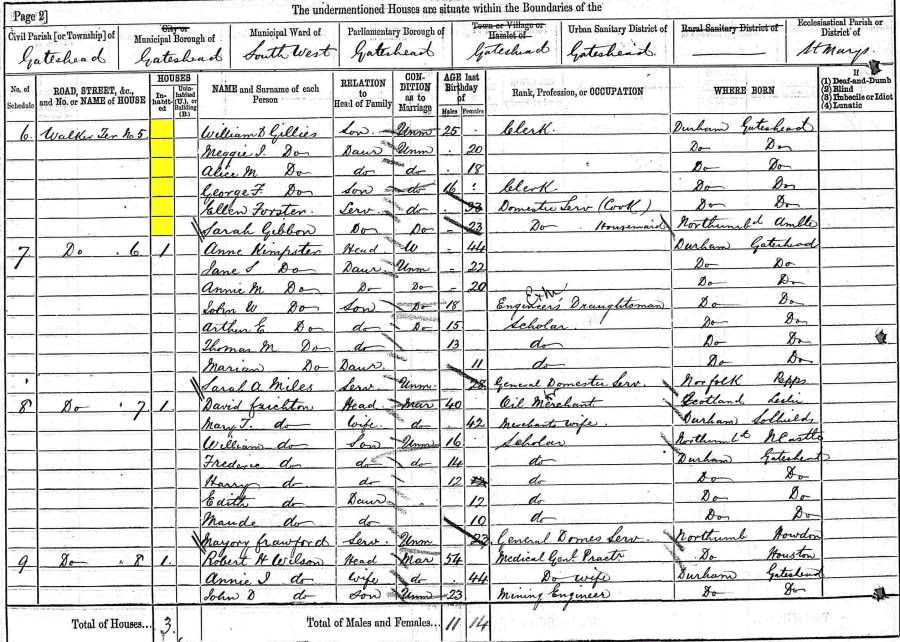 The undermentioned Houses are situate within the Boundaries of the
Page 2]
Civil Parish [or Township] of
Gateshead
City or Municipal Borough of
Gateshead
Municipal Ward of
South West
Parliamentary Borough of
Gateshead
Town or Village or Hamlet of
Gateshead
Urban Sanitary District of
Gateshead
Rural Sanitary District of
Ecclesiastical Parish or District of
St Marys
No. of Schedule
ROAD, STREET, &c., and No. or NAME of HOUSE
HOUSES
Inhabited
Uninhabited (U.), or Building (B.)
NAME and Surname of each Person
RELATION to Head of Family
CONDITION as to Marriage
AGE last Birthday of
Males
Females
Rank, Profession, or OCCUPATION
WHERE BORN
If
(1) Deaf-and-Dumb
(2) Blind
(3) Imbecile or Idiot
(4) Lunatic
6 Walker Ter No 5 William D Gillies Son Unm 25 Clerk Durham Gateshead
Meggie I. Do Daur Unm 20 Do Do
Alice M Do do do 18 Do Do
George F. Do Son do 16 Clerk Do Do
Ellen Forster Serv do Domestic Serv (Cook) Do Do
Sarah Gibbon Do Do 23 Do Housemaid Northumbd Amble
7 Do 6 1 Anne Kimpster Head W 44 Durham Gateshead
Jane S Do Daur Unm 22 Do Do
Annie M Do Do Do 20 Do Do
John W Do Son Do 18 Engineers Draughtsman Do Do
Arthur E Do do Do 15 Scholar Do Do
Thomas M Do do 13 do Do Do
Marian Do Daur 11 do Do Do
Sarah A Miles Serv Unm 28 General Domestic Serv. Norfolk Repps
8 Do 7 1 David Crichton Head Mar 40 Oil Merchant Scotland Leslie
Mary T. do Wife do 42 Merchants wife Durham So Shields
William do Son Unm 16 Scholar Northumbd NCastle
Frederic do do do 14 do Durham Gateshead
Harry do do 12 do Do Do
Edith do Daur 12 do Do Do
Maude do do 10 do Do Do
Mayory Crawford Serv Unm 23 General Domes Serv. Northumb Howdon
9 Do 8 1 Robert H Wilson Head Mar 54 Medical Genl Practr Do Houston
Annie I do Wife do 44 Do wife Durham Gateshead
John D do Son Unm 23 Mining Engineer Do Do
Total of Houses... 3 Total of Males and Females... 11 14